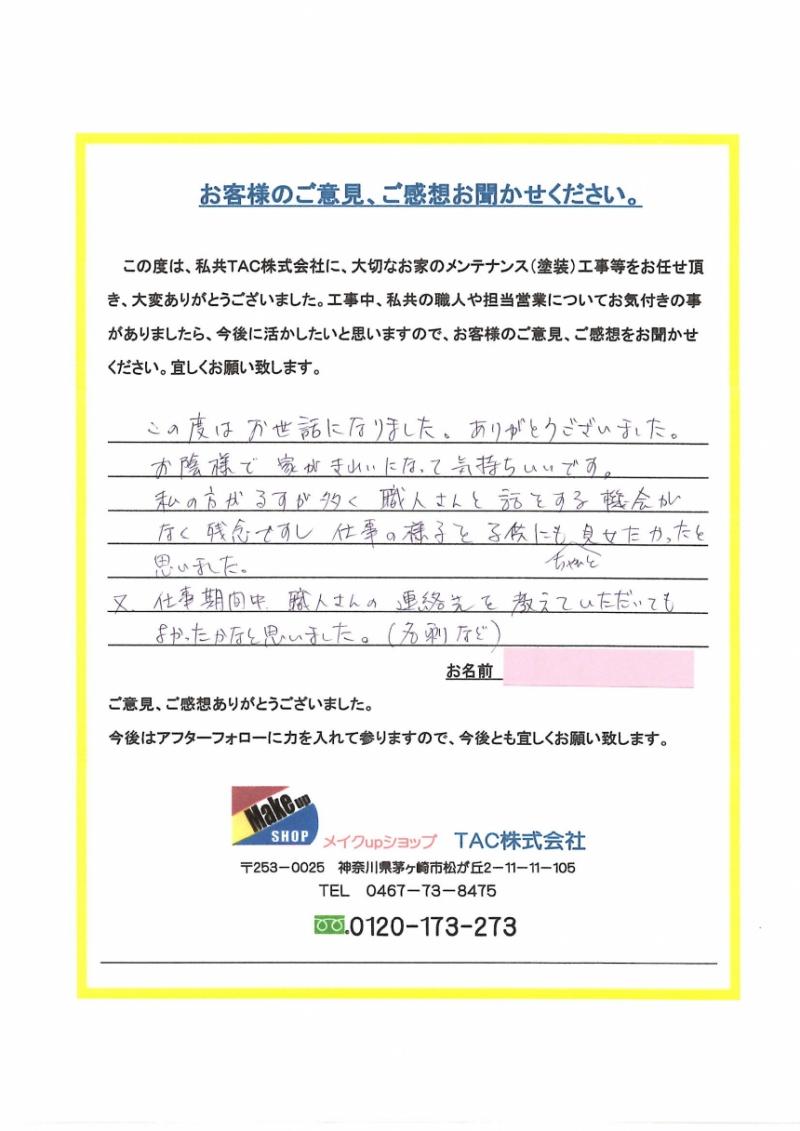 お客様のご意見、ご感想お聞かせください。
この度は、私共TAC株式会社に、大切なお家のメンテナンス（塗装）工事等をお任せ頂
き、大変ありがとうございました。工事中、私共の職人や担当営業についてお気付きの事
がありましたら、今後に活かしたいと思いますので、お客様のご意見、ご感想をお聞かせ
ください。宜しくお願い致します。
この度はお世話になりました。ありがとうございました。
お陰様で家がきれいになって気持ちいいです。
私の方がるすが多く職人さんと話をする機会が
なく残念ですし仕事の様子を子供にも見せたかったと
ちゃんと
思いました。
又、仕事期間中、職人さんの連絡先を教えていただいても
よかったかなと思いました。（名刺など）
お名前
ご意見、ご感想ありがとうございました。
今後はアフターフォローに力を入れて参りますので、今後とも宜しくお願い致します。
Make up
SHOP
メイクupショップ TAC株式会社
〒253－0025 神奈川県茅ヶ崎市松が丘2－11－11－105
TEL 0467－73－8475
0120-173-273